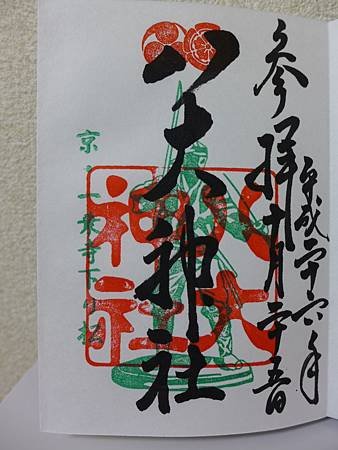 参拝
平成二十六年
十月二十五日
八大神社
八大神社
京・一乗寺下り松